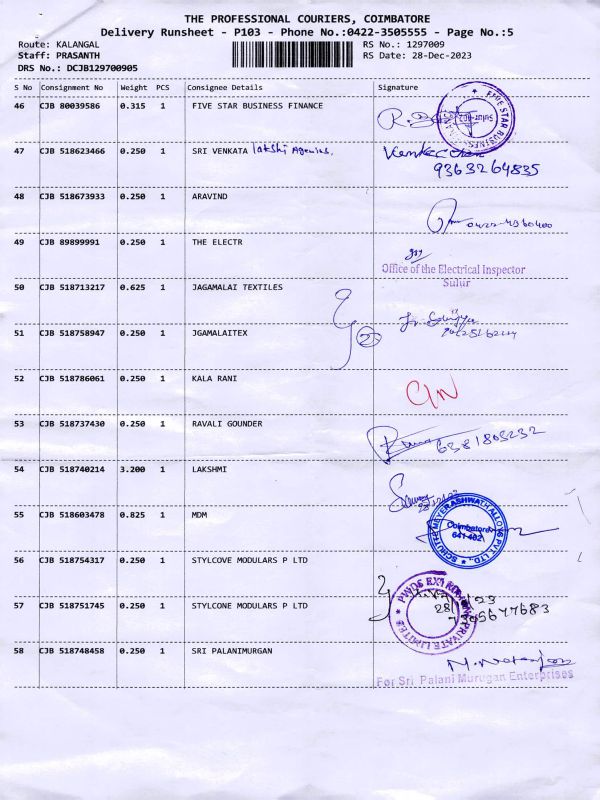 THE PROFESSIONAL COURIERS, COIMBATORE
Delivery Runsheet - P103 - Phone No.:0422-3505555 - Page No.:5
Route: KALANGAL RS No.: 1297009
Staff: PRASANTH RS Date: 28-Dec-2023
DRS No.: DCJB129700905
S No Consignment No Weight PCS Consignee Details Signature
46 CJB 80039586 0.315 1 FIVE STAR BUSINESS FINANCE
47 CJB 518623466 0.250 1 SRI VENKATA Agencies.
9363264835
48 CJB 518673933 0.250 1 ARAVIND
49 CJB 89899991 0.250 1 THE ELECTR
Office of the Electrical Inspector
Sulur
50 CJB 518713217 0.625 1 JAGAMALAI TEXTILES
51 CJB 518758947 0.250 1 JGAMALAITEX
2
52 CJB 518786061 0.250 1 KALA RANI
C/N
53 CJB 518737430 0.250 1 RAVALI GOUNDER
54 CJB 518740214 3.200 1 LAKSHMI
55 CJB 518603478 0.825 1 MDM
Coimbatore
641 402
56 CJB 518754317 0.250 1 STYLCOVE MODULARS P LTD
57 CJB 518751745 0.250 1 STYLCONE MODULARS P LTD
PRIVATE LIMITED
58 CJB 518748458 0.250 1 SRI PALANIMURGAN
For Sri Palani Murugan Enterprises